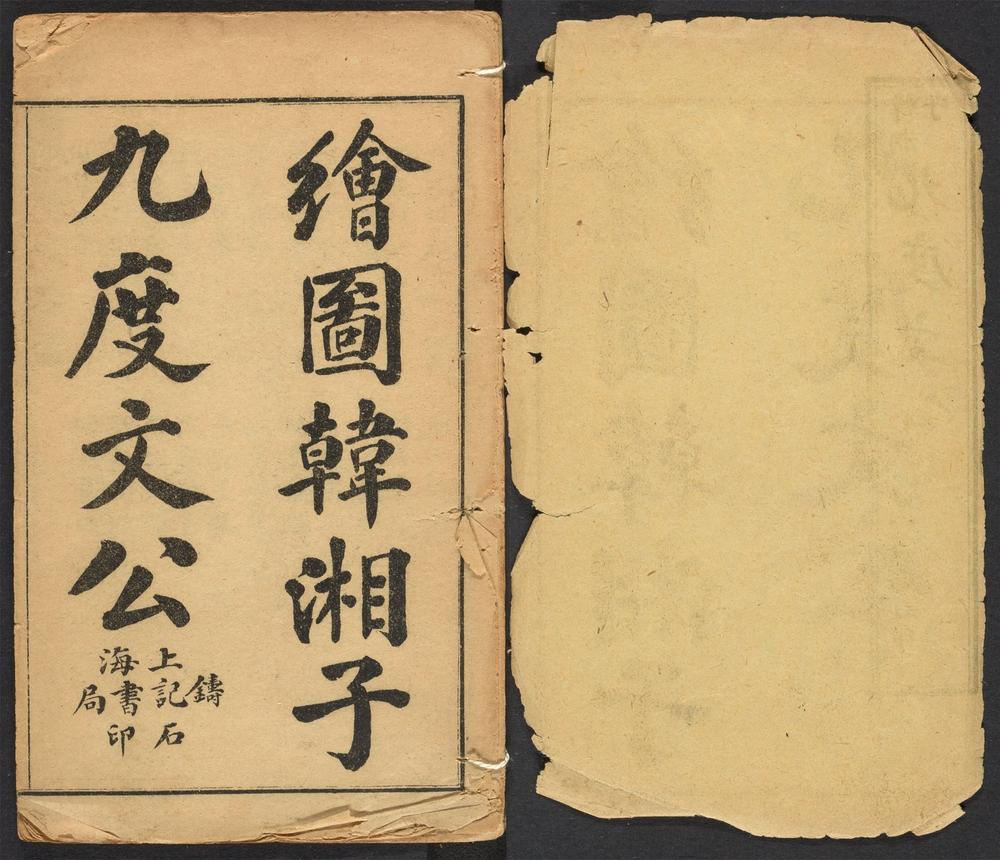 繪圖韓湘子
九度文公
上海
鑄記書局
石印